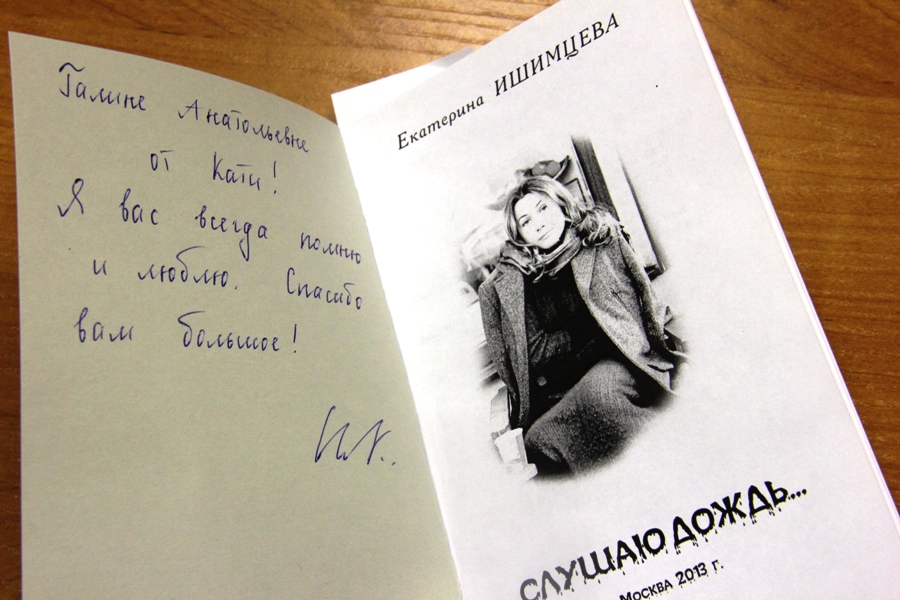 Галине Анатольевне
от Кати!
Я вас всегда помню
и люблю. Спасибо
вам большое!
Екатерина ИШИМЦЕВА
СЛУШАЮ ДОЖДЬ...
Москва 2013 г.